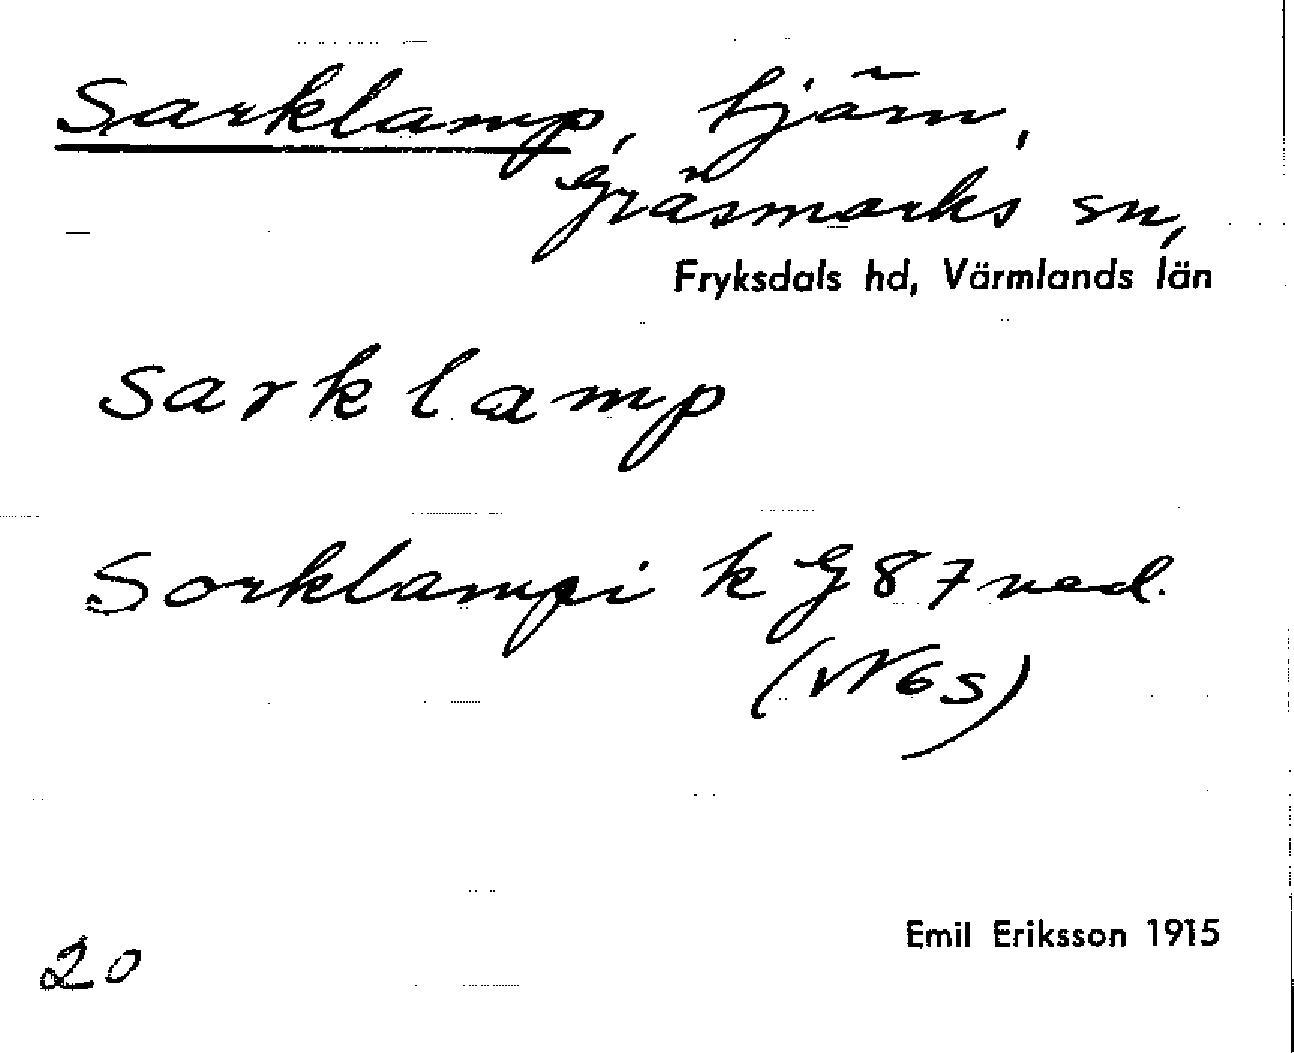 Sarklamp, tjärn,
Gräsmarks sn,
Fryksdals hd, Värmlands län
sarklamp
Sorklampi k G 87 ned.
(VN6s)
Emil Eriksson 1915
20